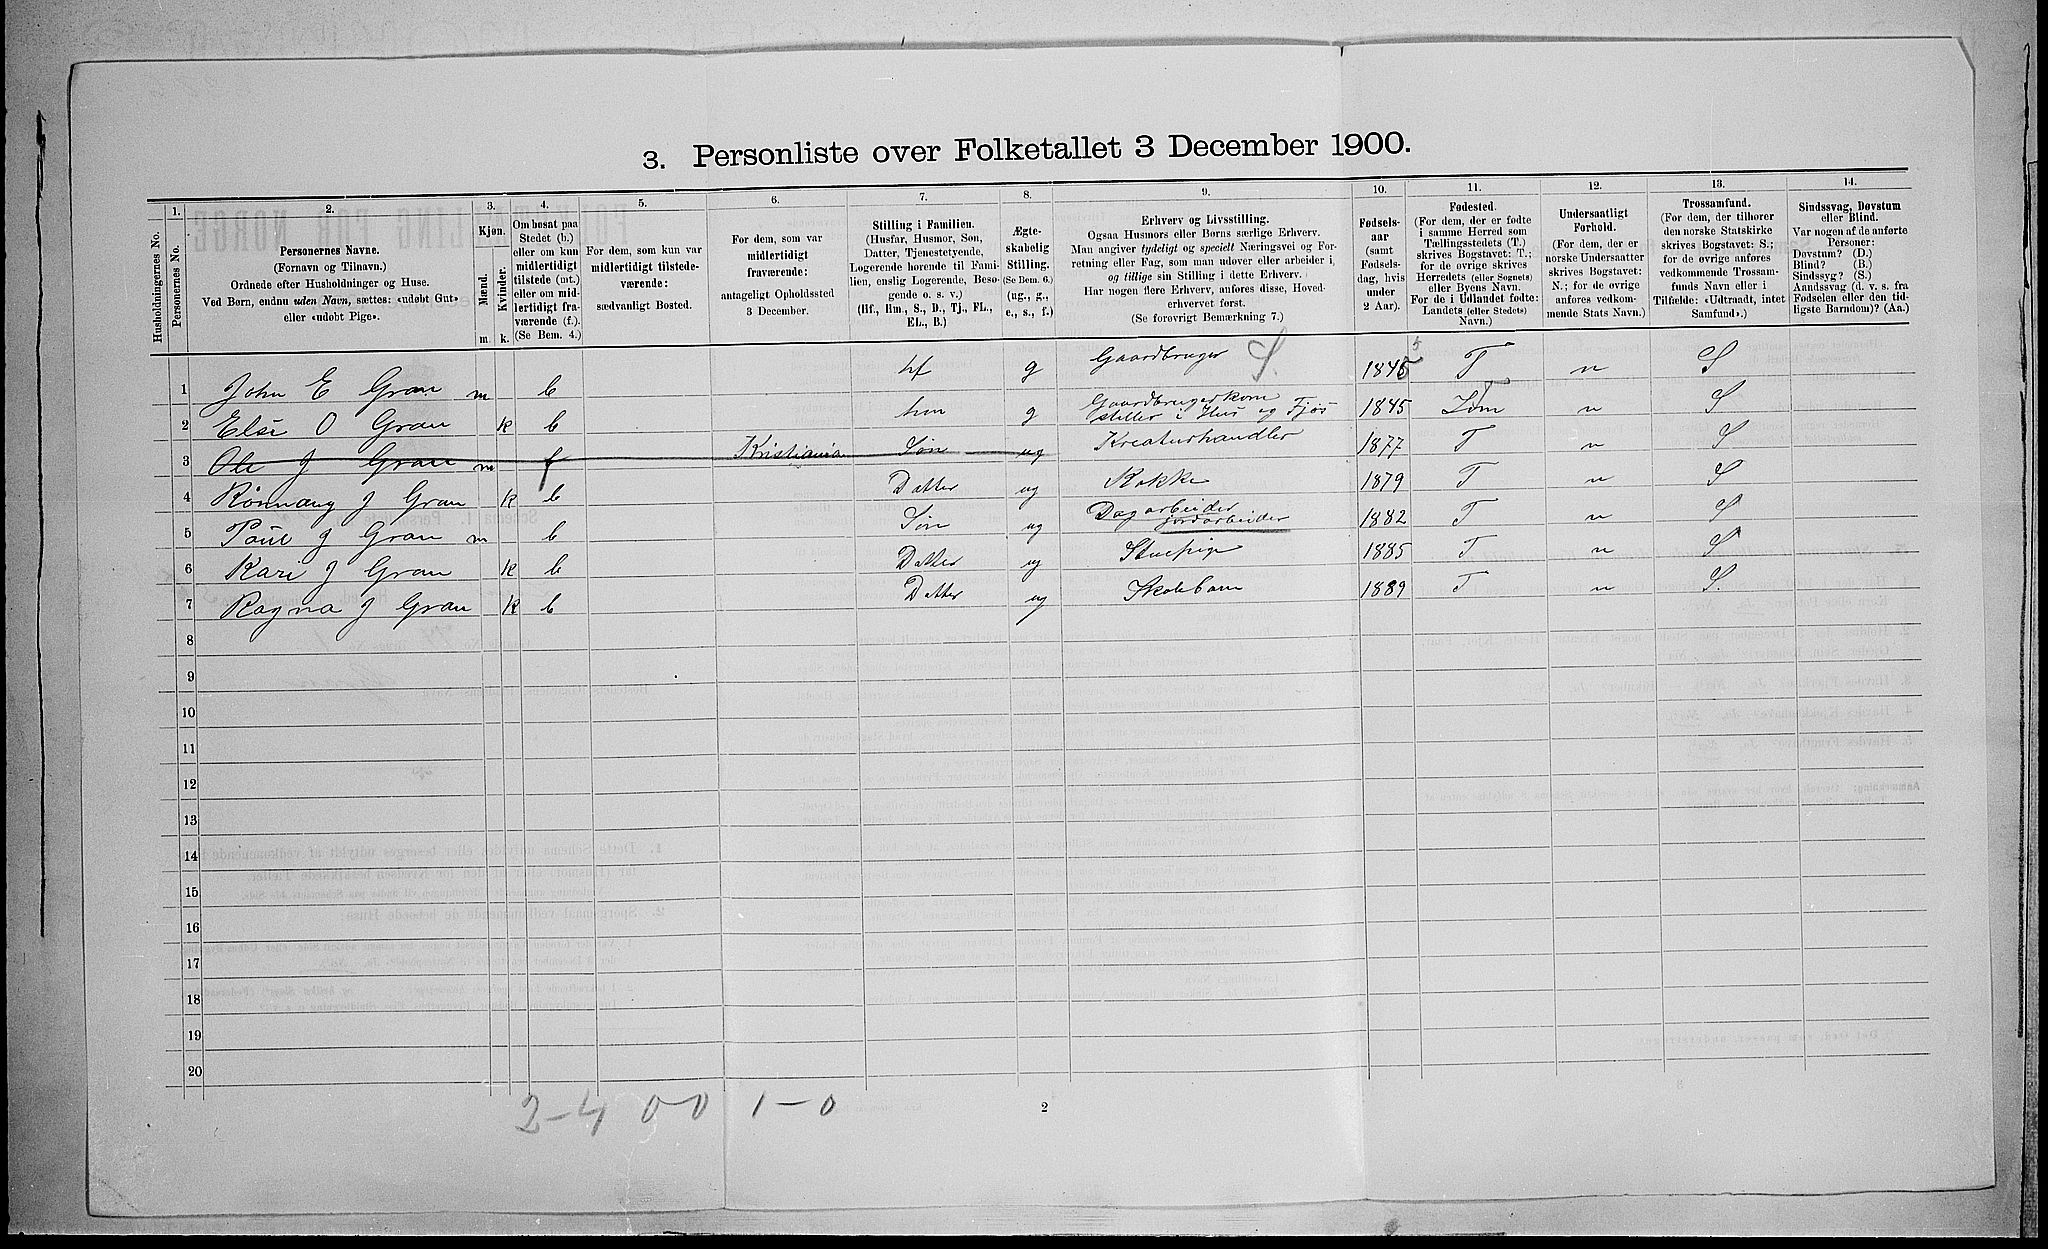 3. Personliste over Folketallet 3 December 1900.
1. 2. 3. 4. 5. 6. 7. 8. 9. 10. 11. 12. 13. 14.
Husholdningernes No.
Personernes No.
Personernes Navne.
(Fornavn og Tilnavn.)
Ordnede efter Husholdninger og Huse.
Ved Børn, endnu uden Navn, sættes: «udøbt Gut»
eller «udøbt Pige».
Kjøn.
Mænd.
Kvinder.
m. k.
Om bosat paa
Stedet (b.)
eller om kun
midlertidigt
tilstede (mt.)
eller om mid-
lertidigt fra-
værende (f.).
(Se Bem. 4.)
For dem, som kun var
midlertidigt tilstede-
værende:
sædvanligt Bosted.
For dem, som var
midlertidigt
fraværende:
antageligt Opholdssted
3 December.
Stilling i Familien.
(Husfar, Husmor, Søn,
Datter, Tjenestetyende,
Logerende hørende til Fami-
lien, enslig Logerende, Besø-
gende o. s. v.)
(Hf., Hm., S., D., Tj., FL.,
EL., B.)
Ægte-
skabelig
Stilling.
(Se Bem. 6.)
(ug., g.,
e., s., f.)
Erhverv og Livsstilling.
Ogsaa Husmors eller Børns særlige Erhverv.
Man angiver tydeligt og specielt Næringsvei og For-
retning eller Fag, som man udøver eller arbeider i,
og tillige sin Stilling i dette Erhverv.
Har nogen flere Erhverv, anføres disse, Hoved-
erhvervet først.
(Se forøvrigt Bemærkning 7.)
Fødsels-
aar
(samt
Fødsels-
dag, hvis
under
2 Aar).
Fødested.
(For dem, der er fødte
i samme Herred som
Tællingsstedets (T.)
skrives Bogstavet: T.;
for de øvrige skrives
Herredets (eller Sognets)
eller Byens Navn.
For de i Udlandet fødte:
Landets (eller Stedets)
Navn.)
Undersaatligt
Forhold.
(For dem, der er
norske Undersaatter
skrives Bogstavet:
N.; for de øvrige
anføres vedkom-
mende Stats Navn.)
Trossamfund.
(For dem, der tilhører
den norske Statskirke
skrives Bogstavet: S.;
for de øvrige anføres
vedkommende Trossam-
funds Navn eller i
Tilfælde: «Udtraadt, intet
Samfund».)
Sindssvag, Døvstum
eller Blind.
Var nogen af de anførte
Personer:
Døvstum? (D.)
Blind? (B.)
Sindssyg? (S.)
Aandssvag (d. v. s. fra
Fødselen eller den tid-
ligste Barndom)? (Aa.)
1 John E Gran m b hf g Gaardbruger S. 1845 5 T n S
2 Else O Gran k b hm g Gaardbrugerkone steller i Hus og Fjøs 1845 Lom T n S
3 Ole J Gran m f Kristiania Søn ug Kreaturhandler 1877 T n S
4 Rønnaug J Gran k b Datter ug Kokke 1879 T n S
5 Paul J Gran m b Søn ug Dagarbeider jordarbeider 1882 T n S
6 Kari J Gran k b Datter ug Stuepige 1885 T n S
7 Ragna J Gran k b Datter ug Skolebarn 1889 T n S.
8
9
10
11
12
13
14
15
16
17
18
19
20
2-4 0 0 1-0
2